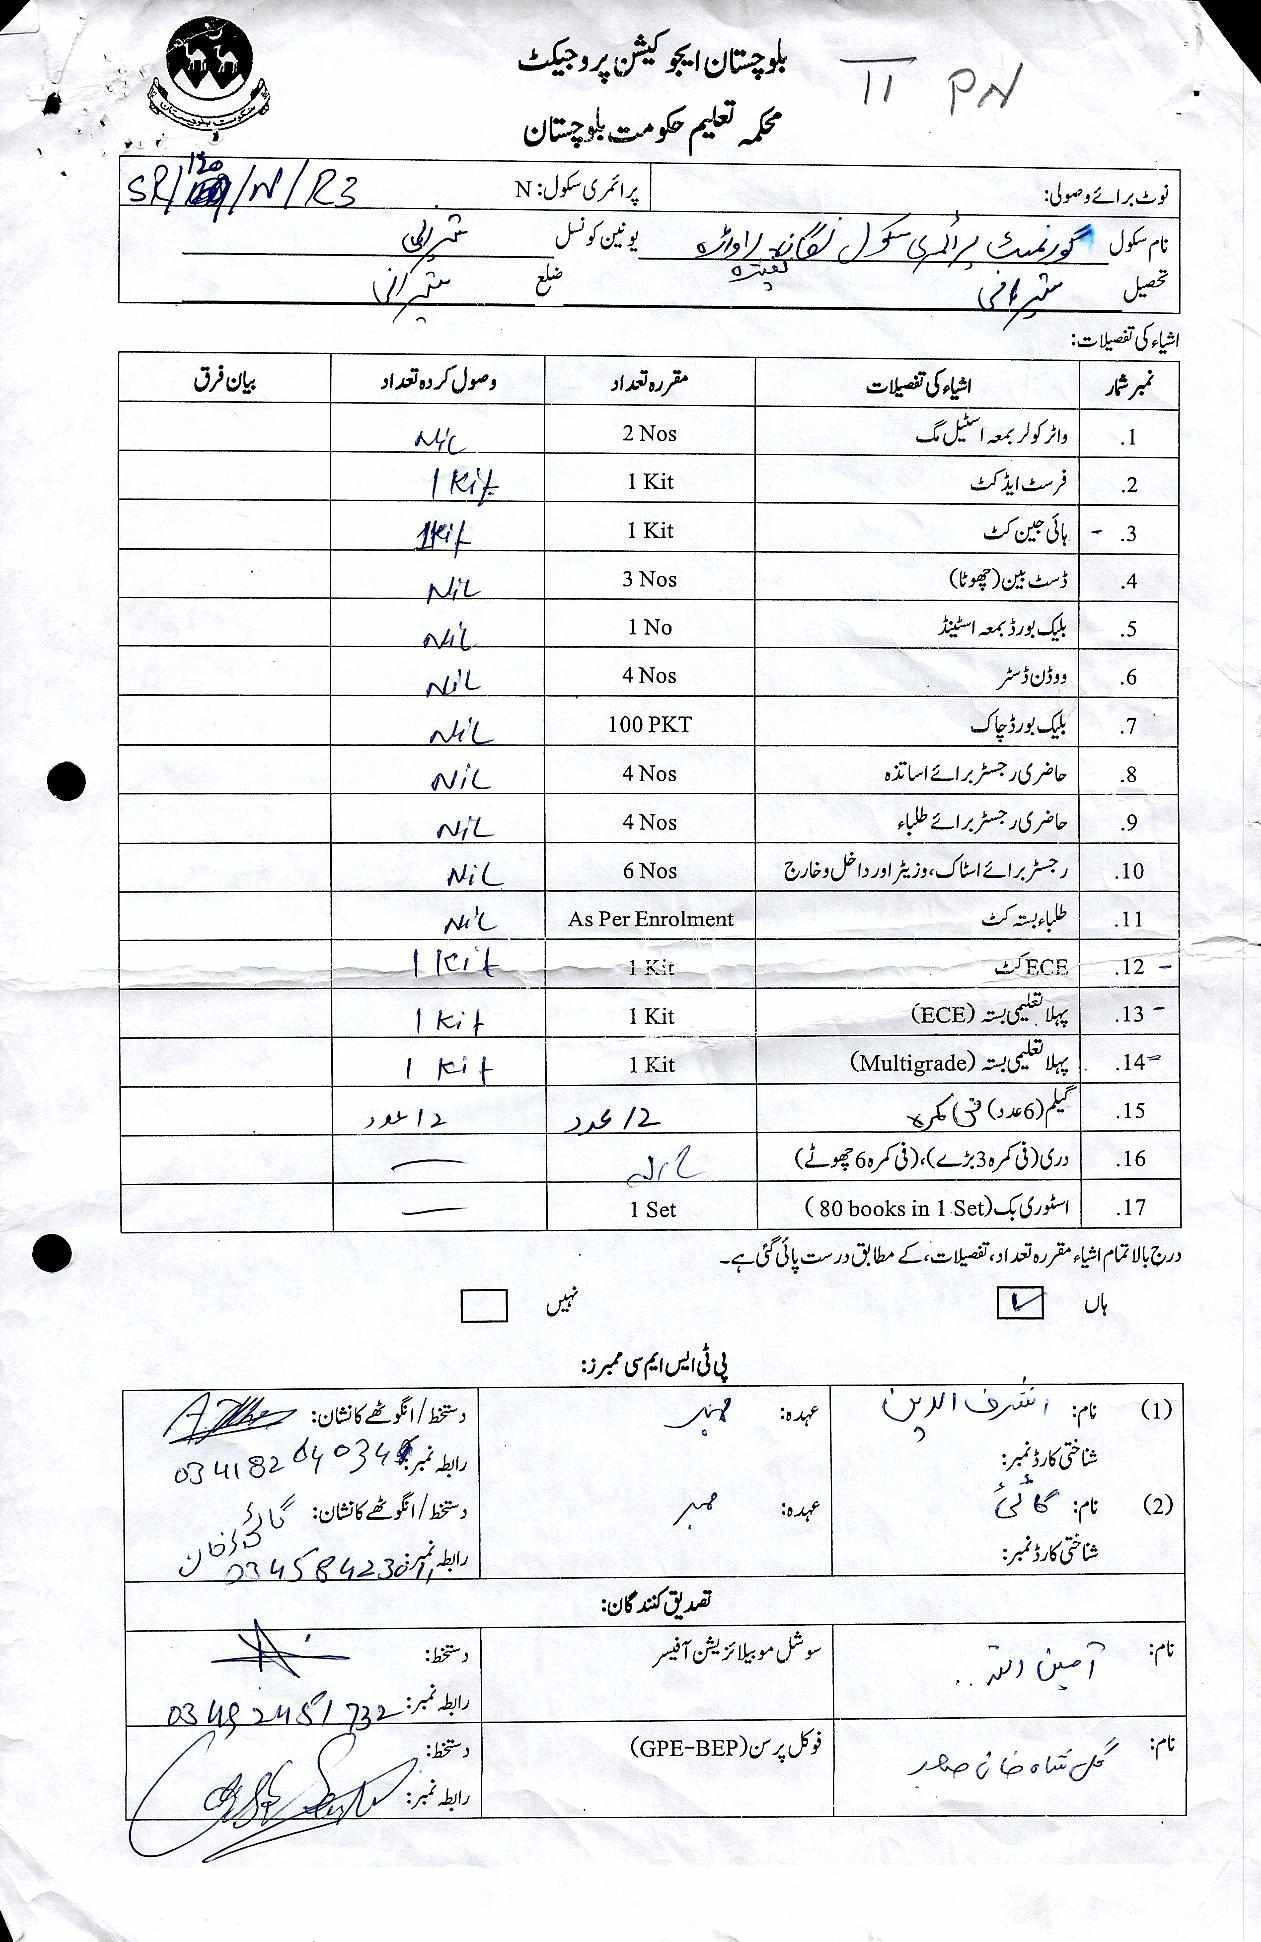 بلوچستان ایجوکیشن پروجیکٹ
II PN
محکمہ تعلیم حکومت بلوچستان
حکومت بلوچستان
نوٹ برائے وصولی: پرائمری سکول: N SR/120/N/R3
نام سکول گورنمنٹ پرائمری سکول راواڑہ یونین کونسل شیرانی
تحصیل شیرانی ضلع شیرانی
اشیاء کی تفصیلات:
نمبر شمار اشیاء کی تفصیلات مقررہ تعداد وصول کردہ تعداد بیان فرق
.1 واٹر کولر بمعہ اسٹیل مگ 2 Nos Nil
.2 فرسٹ ایڈ کٹ 1 Kit 1 Kit
.3 - ہائی جین کٹ 1 Kit 1Kit
.4 ڈسٹ بین (چھوٹا) 3 Nos Nil
.5 بلیک بورڈ بمعہ اسٹینڈ 1 No Nil
.6 ووڈن ڈسٹر 4 Nos Nil
.7 بلیک بورڈ چاک 100 PKT Nil
.8 حاضری رجسٹر برائے اساتذہ 4 Nos Nil
.9 حاضری رجسٹر برائے طلباء 4 Nos Nil
.10 رجسٹر برائے اسٹاک، وزیٹر اور داخل و خارج 6 Nos Nil
.11 طلباء بستہ کٹ As Per Enrolment Nil
.12 - ECE کٹ 1 Kit 1 Kit
.13 - پہلا تعلیمی بستہ (ECE) 1 Kit 1 Kit
.14 - پہلا تعلیمی بستہ (Multigrade) 1 Kit 1 Kit
.15 گیلم (6 عدد) فی کمرہ 12 عدد 12 عدد
.16 دری (فی کمرہ 3 بڑے)، (فی کمرہ 6 چھوٹے) —
.17 اسٹوری بک (80 books in 1 Set) 1 Set —
درج بالا تمام اشیاء مقررہ تعداد، تفصیلات، کے مطابق درست پائی گئی ہے۔
ہاں ✓ نہیں
پی ٹی ایس ایم سی ممبرز:
(1) نام: اشرف الدین عہدہ: ممبر دستخط/انگوٹھے کا نشان:
شناختی کارڈ نمبر: رابطہ نمبر:
(2) نام: عہدہ: ممبر دستخط/انگوٹھے کا نشان:
شناختی کارڈ نمبر: رابطہ نمبر: 03458423011
تصدیق کنندگان:
نام: آمین اللہ سوشل موبیلائزیشن آفیسر دستخط:
رابطہ نمبر:
نام: گل شاہ خان فوکل پرسن (GPE-BEP) دستخط:
رابطہ نمبر: